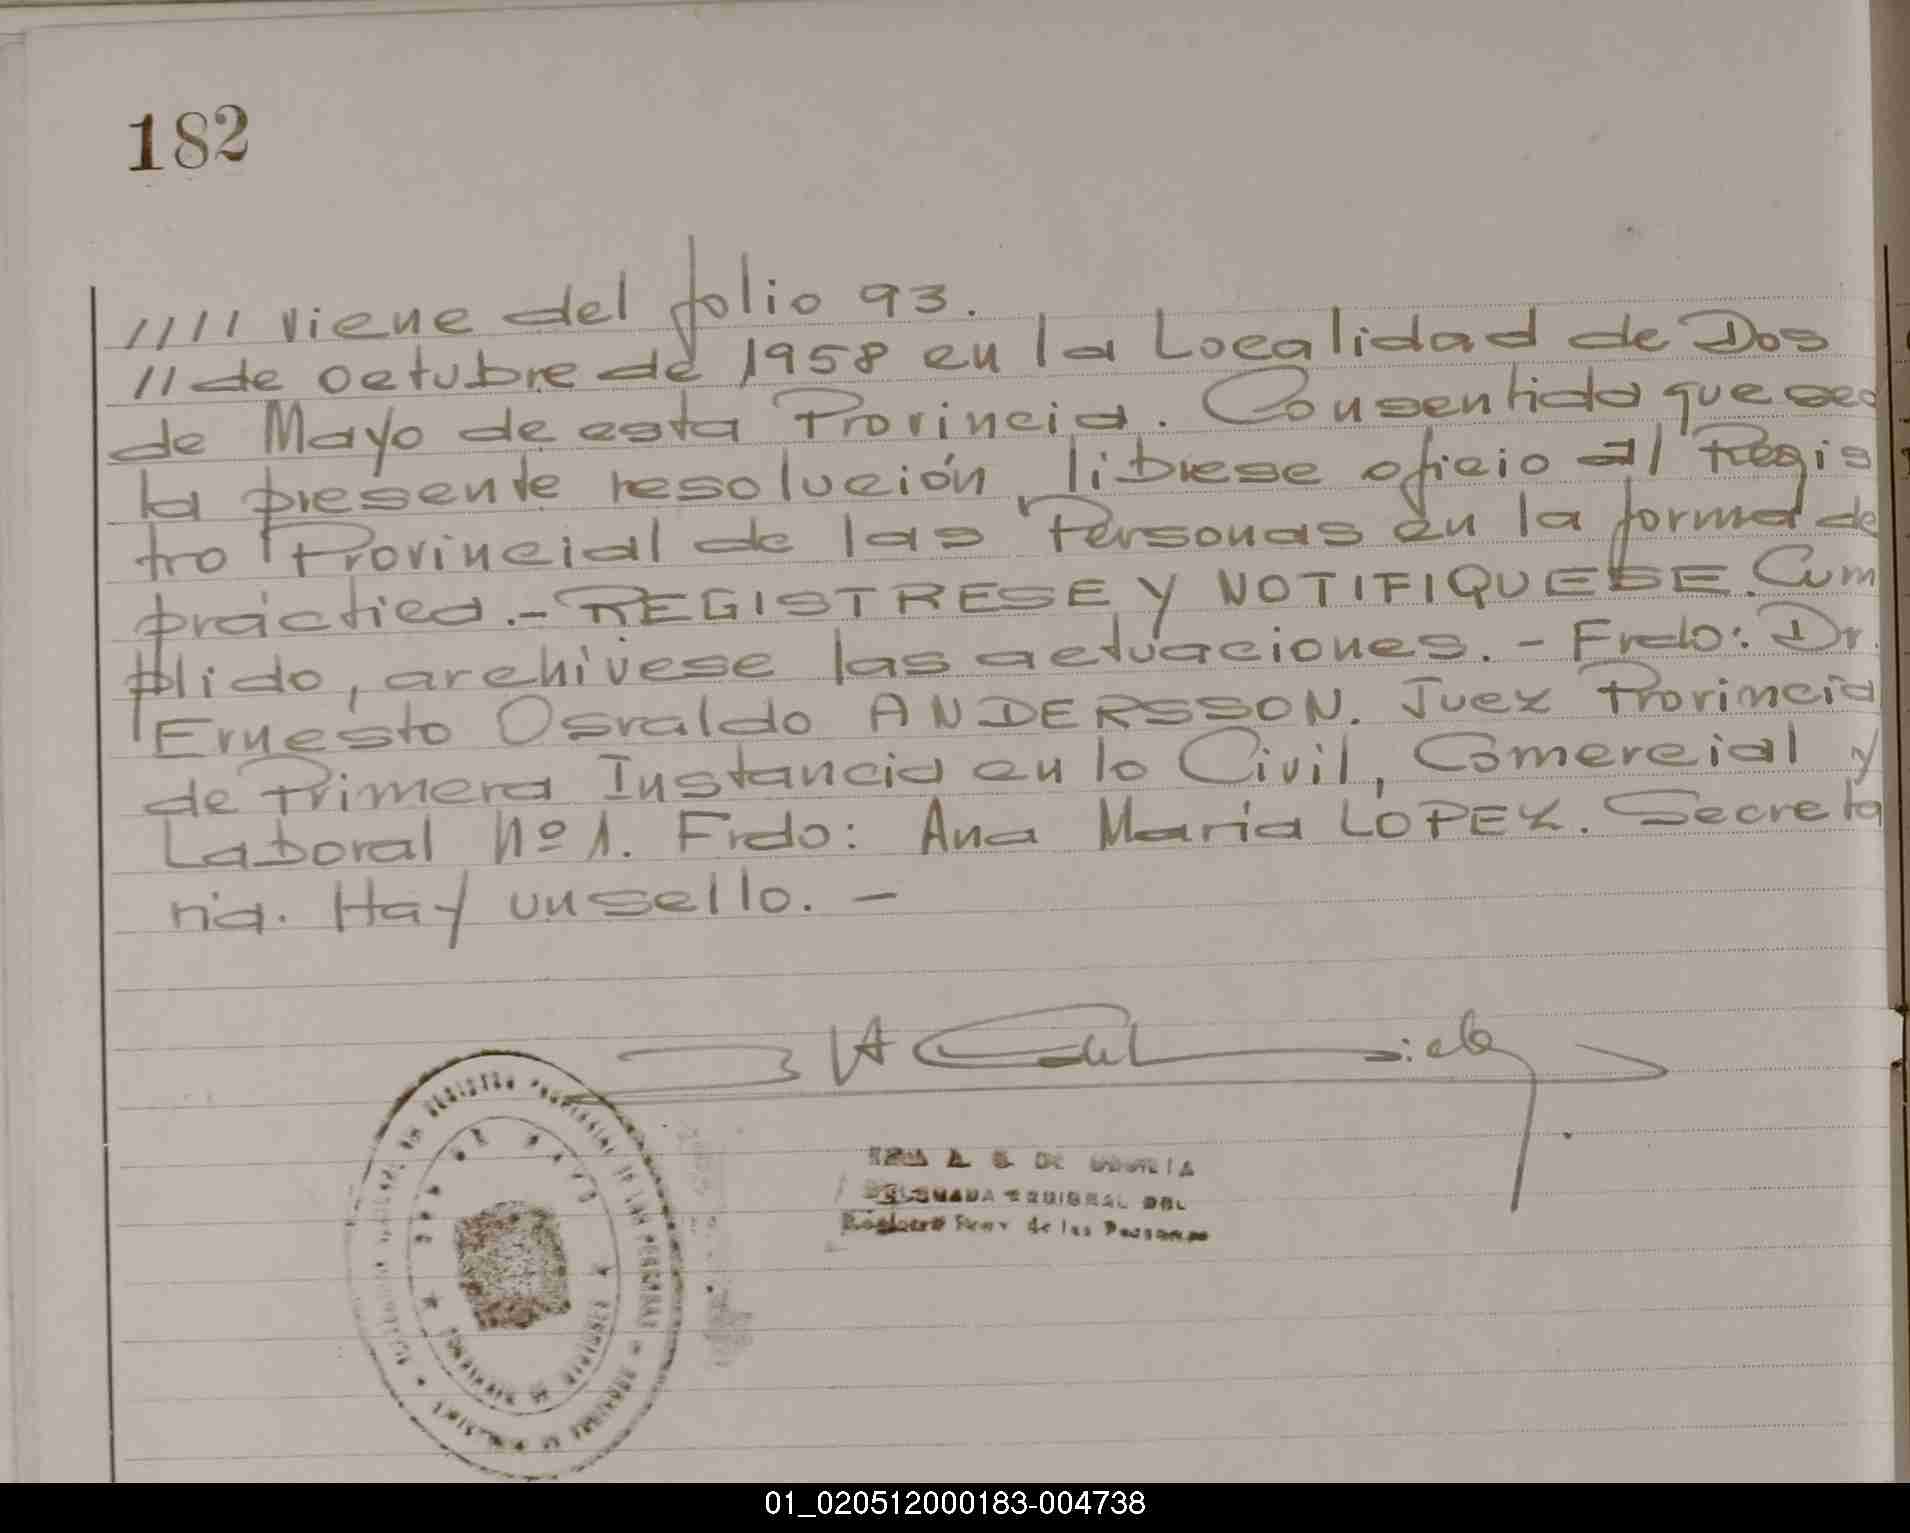 182
//// viene del folio 93.
11 de octubre de 1958 en la Localidad de Dos
de Mayo de esta Provincia. Consentida que sea
la presente resolución, librese oficio al Regis
tro Provincial de las Personas en la forma de
práctica.- REGISTRESE Y NOTIFIQUESE. Cum
plido, archívese las actuaciones. - Frdo: Dr.
Ernesto Osvaldo ANDERSSON. Juez Provincia
de Primera Instancia en lo Civil, Comercial y
Laboral Nº 1. Frdo: Ana María LOPEZ. Secreta
ria. Hay un sello. -
REGISTRO PROVINCIAL DE LAS PERSONAS
DOS DE MAYO
DE
DELEGADA REGIONAL DEL
Registro Prov de las Personas
01_020512000183-004738